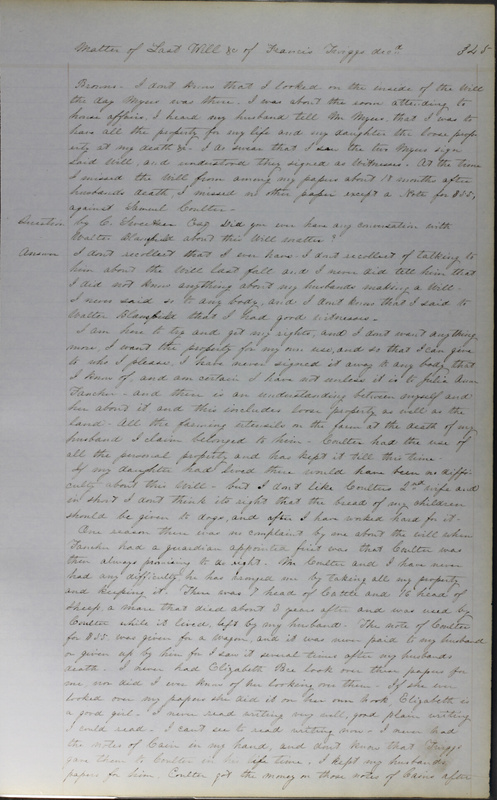 Matter of Last Will &c of Francis Treggs decd 345
Brown. I dont know that I looked on the inside of the Will
the day Myers was there. I was about the room attending to
house affairs. I heard my husband tell Mr Myers, that I was to
have all the property for my life and my daughter the loose prop-
erty at my death &c. I am sure that I saw the two Myers sign
said Will, and understood they signed as Witnesses. At the time
I missed the Will from among my papers about 18 months after
husbands death, I missed no other paper except a Note for $55,
against Samuel Coulter.
Question by C. Esqr Did you ever have any conversation with
Walter about this Will matter?
Answer I dont recollect that I ever have. I dont recollect of talking to
him about the Will last fall and I never did tell him that
I did not know anything about my husbands making a Will.
I never said so to any body, and I dont know that I said to
Walter that I had good witnesses.
I am here to try and get my rights, and I dont want anything
more, I want the property for my own use, and so that I can give
to who I please, I have never signed it away to any body that
I know of, and am certain I have not unless it is to Julia Ann
and there is an understanding between myself and
her about it and this includes loose property as well as the
land. All the farming utensils on the farm at the death of my
husband I claim belonged to him. Coulter had the use of
all the personal property and has kept it till this time.
If my daughter had lived there would have been no diffi-
culty about this Will. but I dont like Coulters 2nd wife and
in short I dont think its right that the bread of my children
should be given to dogs, and after I have worked hard for it.
One reason there was no complaint by me about the will when
had a guardian appointed first was that Coulter was
then always promising to do right. Mr Coulter and I have never
had any difficulty he has wronged me by taking all my property
and keeping it. There was 7 head of Cattle and 16 head of
Sheep, a mare that died about 3 years after and was used by
Coulter while it lived, left by my husband. The note of Coulter
for $55. was given for a wagon, and it was never paid to my husband
or given up by him for I saw it several times after my husbands
death. I never had Elizabeth Bee look over these papers for
me nor did I ever know of her looking over them. If she ever
looked over my papers she did it on her own hook. Elizabeth is
a good girl. I never read writing very well, good plain writing
I could read. I cant see to read writing now. I never had
the notes of Cain in my hand, and dont know that Treggs
gave them to Coulter in his life time, I kept my husbands
papers for him. Coulter got the money on those notes of Cains after